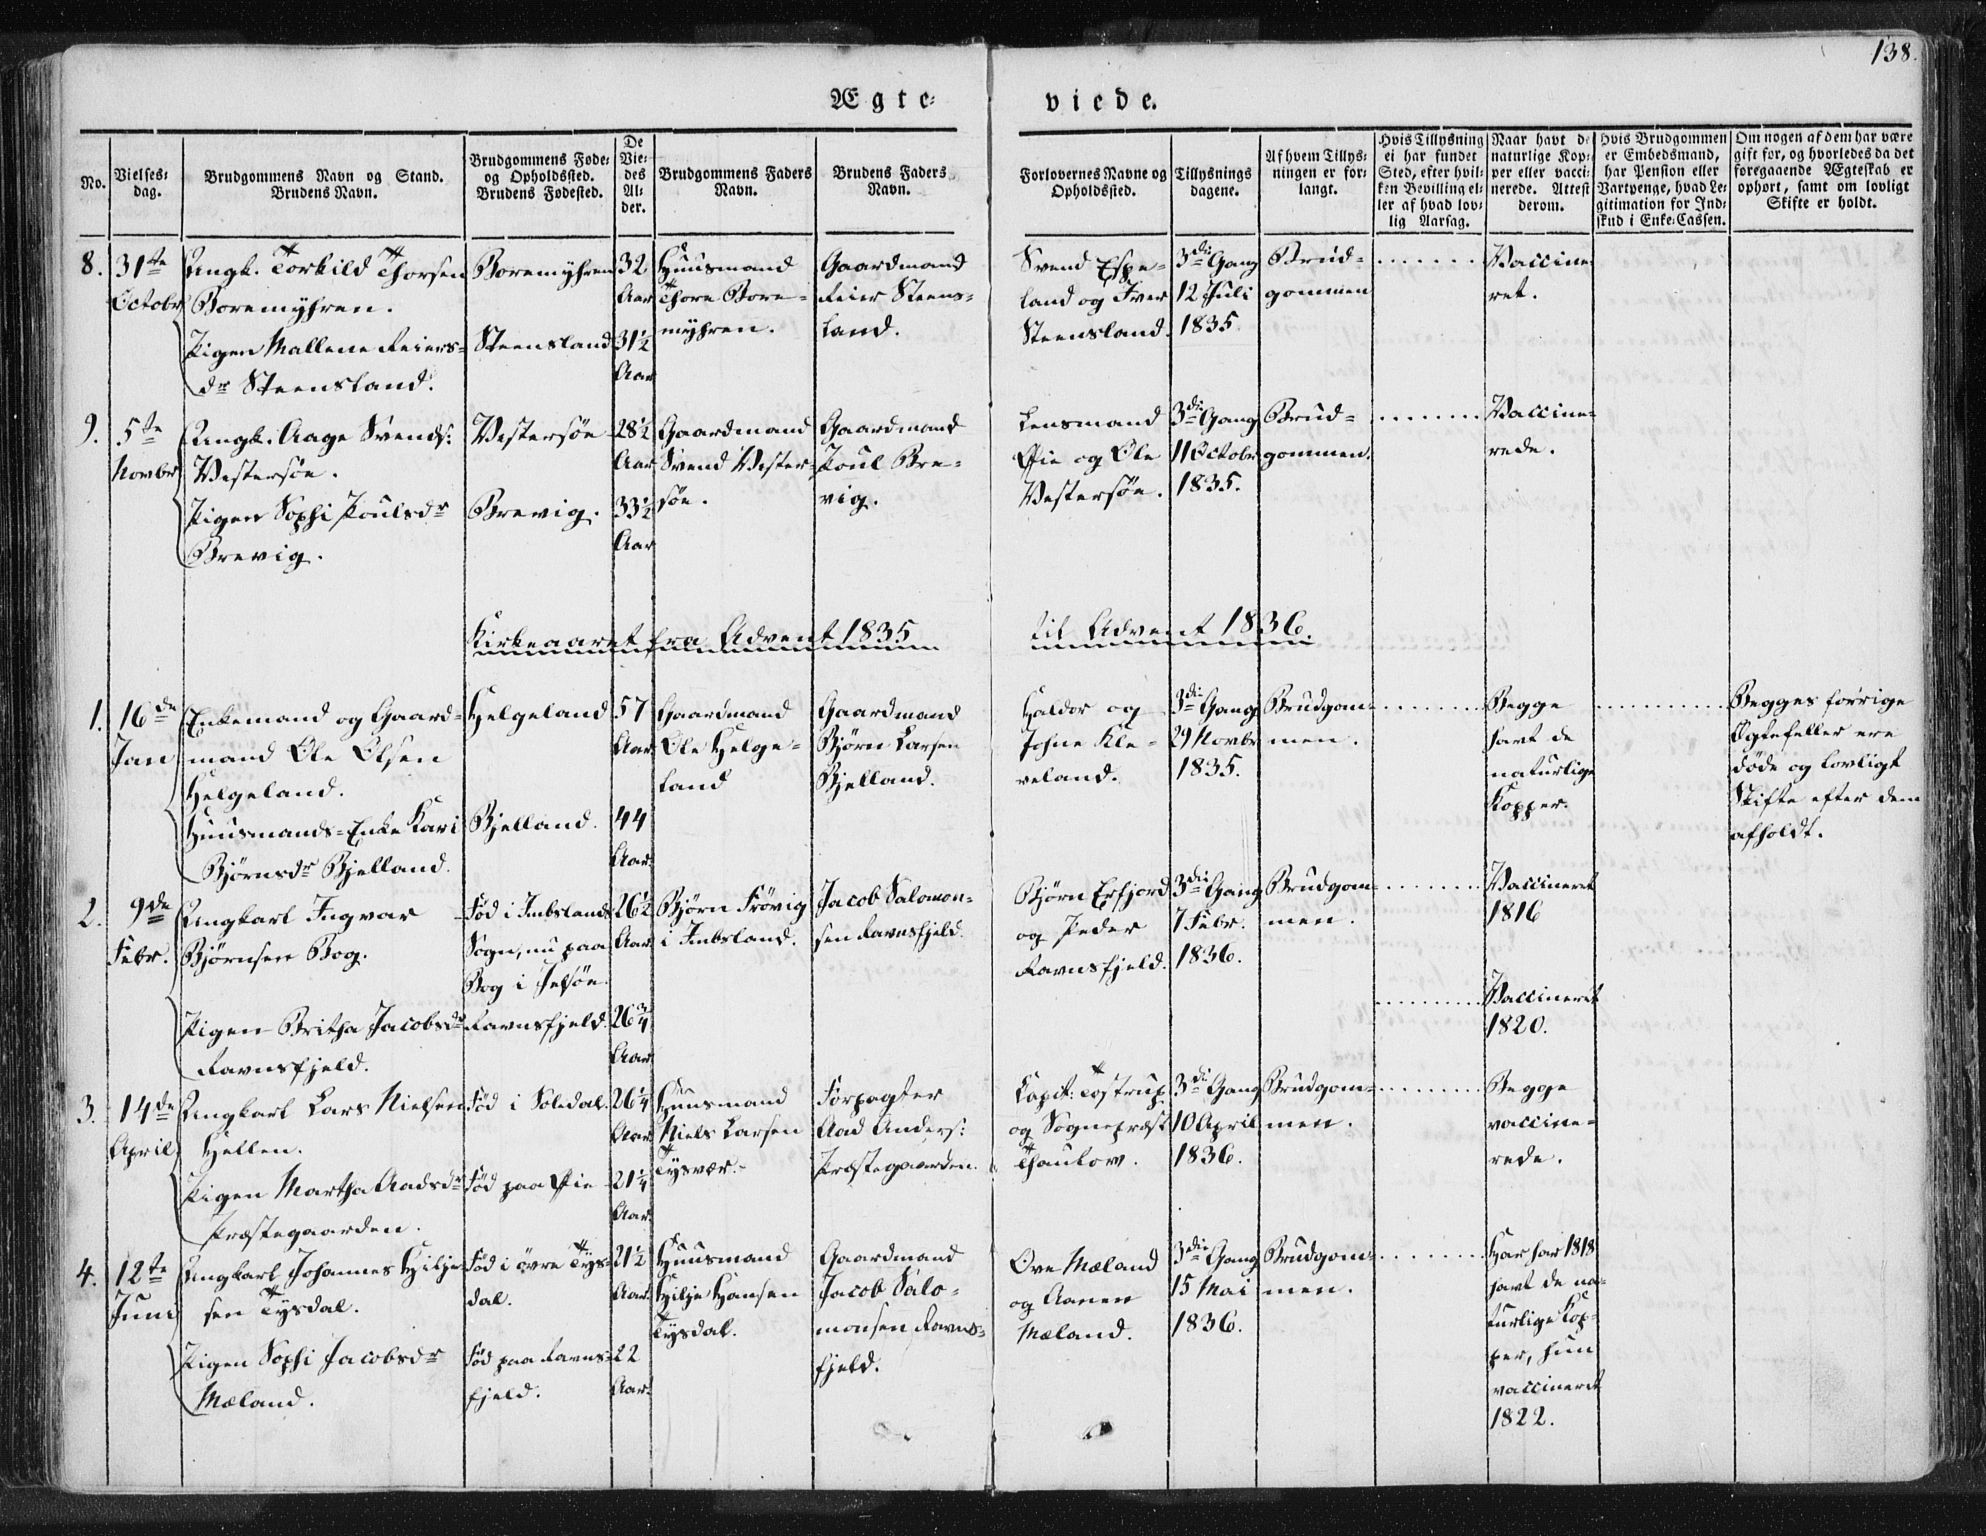 138.
Ægte-
viede.
No.
Vielses-
dag.
Brudgommens Navn og Stand.
Brudens Navn.
Brudgommens Føde-
og Opholdssted.
Brudens Fødested.
De
Vie-
des
Al-
der.
Brudgommens Faders
Navn.
Brudens Faders
Navn.
Forlovernes Navne og
Opholdssted.
Tillysnings
dagene.
Af hvem Tillys-
ningen er for-
langt.
Hvis Tillysning
ei har fundet
Sted, efter hvil-
ken Bevilling el-
ler af hvad lov-
lig Aarsag.
Naar havt de
naturlige Kop-
per eller vacci-
nerede. Attest
derom.
Hvis Brudgommen
er Embedsmand,
har Pension eller
Vartpenge, hvad Le-
gitimation for Ind-
skud i Enke-Cassen.
Om nogen af dem har være
gift før, og hvorledes da det
foregaaende Ægteskab er
ophørt, samt om lovligt
Skifte er holdt.
8.
31te
Octobr
Ungk. Torkild Thorsen
Boremyhren.
Pigen Mallene Reiers-
dr Steensland.
Boremyhren
Steensland
32
Aar
31½
Aar
Huusmand
Thore Bore-
myhren.
Gaardmand
Reier Steens-
land.
Svend Espe-
land og Iver
Steensland.
3di Gang
12 Juli
1835.
Brud-
gommen
Vaccine-
ret.
9.
5te
Novbr
Ungk. Aage Svends:
Vestersøe.
Pigen Sophi Poulsdr
Brevig.
Vestersøe
Brevig.
28½
Aar
33½
Aar
Gaardmand
Svend Vester-
søe.
Gaardmand
Poul Bre-
vig.
Lensmand
Øie og Ole
Vestersøe.
3di Gang
11 Octobr
1835.
Brud-
gommen.
Vaccine-
rede.
Kirkeaaret fra Advent 1835
til Advent 1836.
1.
16de
Jan
Enkemand og Gaard-
mand Ole Olsen
Helgeland.
Huusmands-Enke Kari
Bjørnsdr Bjelland.
Helgeland
Bjelland.
57
Aar
44
Aar
Gaardmand
Ole Helge-
land
Gaardmand
Bjørn Larsen
Bjelland.
Haldor og
Johne Kle-
veland.
3di Gang
29 Novbr
1835.
Brudgom-
men.
Begge
havt de
naturlige
Kopper.
Begges forrige
Ægtefeller ere
døde og lovligt
Skifte efter dem
afholdt.
2.
9de
Febr.
Ungkarl Ingvar
Bjørnsen Bog.
Pigen Britha Jacobsdr
Ravnsfjeld.
Fød i Imbslands
Sogn, nu paa
Bog i Jelsøe.
Ravnsfjeld.
26½
Aar
26¾
Aar
Bjørn Frøvig
i Imbsland.
Jacob Salomon-
sen Ravnsfjeld.
Bjørn Erfjord
og Peder
Ravnsfjeld.
3di Gang
7 Febr.
1836.
Brudgom-
men.
Vaccineret
1816
Vaccineret
1820.
3.
14de
April
Ungkarl Lars Nielsen
Hellen.
Pigen Martha Aadsdr
Præstegaarden.
Fød i Soledal.
Fød paa Øie
26¼
Aar
21¼
Aar.
Huusmand
Niels Larsen
Tysvær.
Forpagter
Aad Anders:
Præstegaarden.
Kapit: Tostrup
og Sognepræst
Thaulow.
3di Gang
10 April
1836.
Brudgom-
men.
Begge
vaccine-
rede.
4.
12te
Juni
Ungkarl Johannes Hilje-
sen Tysdal.
Pigen Sophi Jacobsdr
Mæland.
Fød i øvre Tys-
dal.
Fød paa Ravns-
fjeld.
21½
Aar.
22
Aar.
Huusmand
Hilje Hansen
Tysdal.
Gaardmand
Jacob Salo-
monsen Ravns-
fjeld.
Ove Mæland
og Aanen
Mæland.
3di Gang
15 Mai
1836.
Brudgom-
men.
1818
havt de na-
turlige Kop-
per, hun
vaccineret
1822.